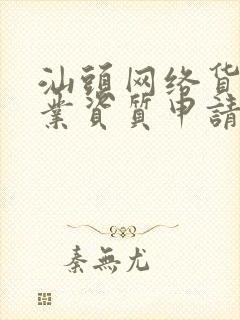 汕頭网络貨
業資質申請
秦無尤